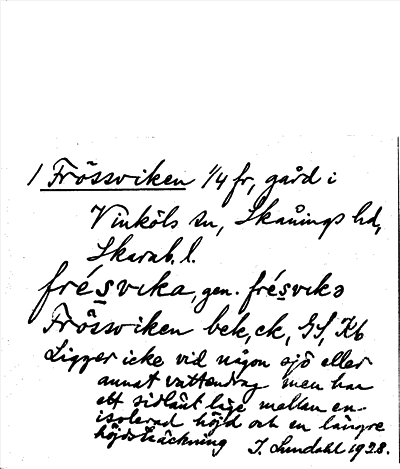 1 Frössviken 1/4 fr, gård i
Vinköls sn, Skånings hd,
Skarab. l.
frésvika, gen. frésvikə
Frössviken bek, ek, GS, Kb
Ligger icke vid någon sjö eller
annat vattendrag men har
ett sidlänt läge mellan en
isolerad höjd och en längre
höjdsträckning
I. Lundahl 1928.